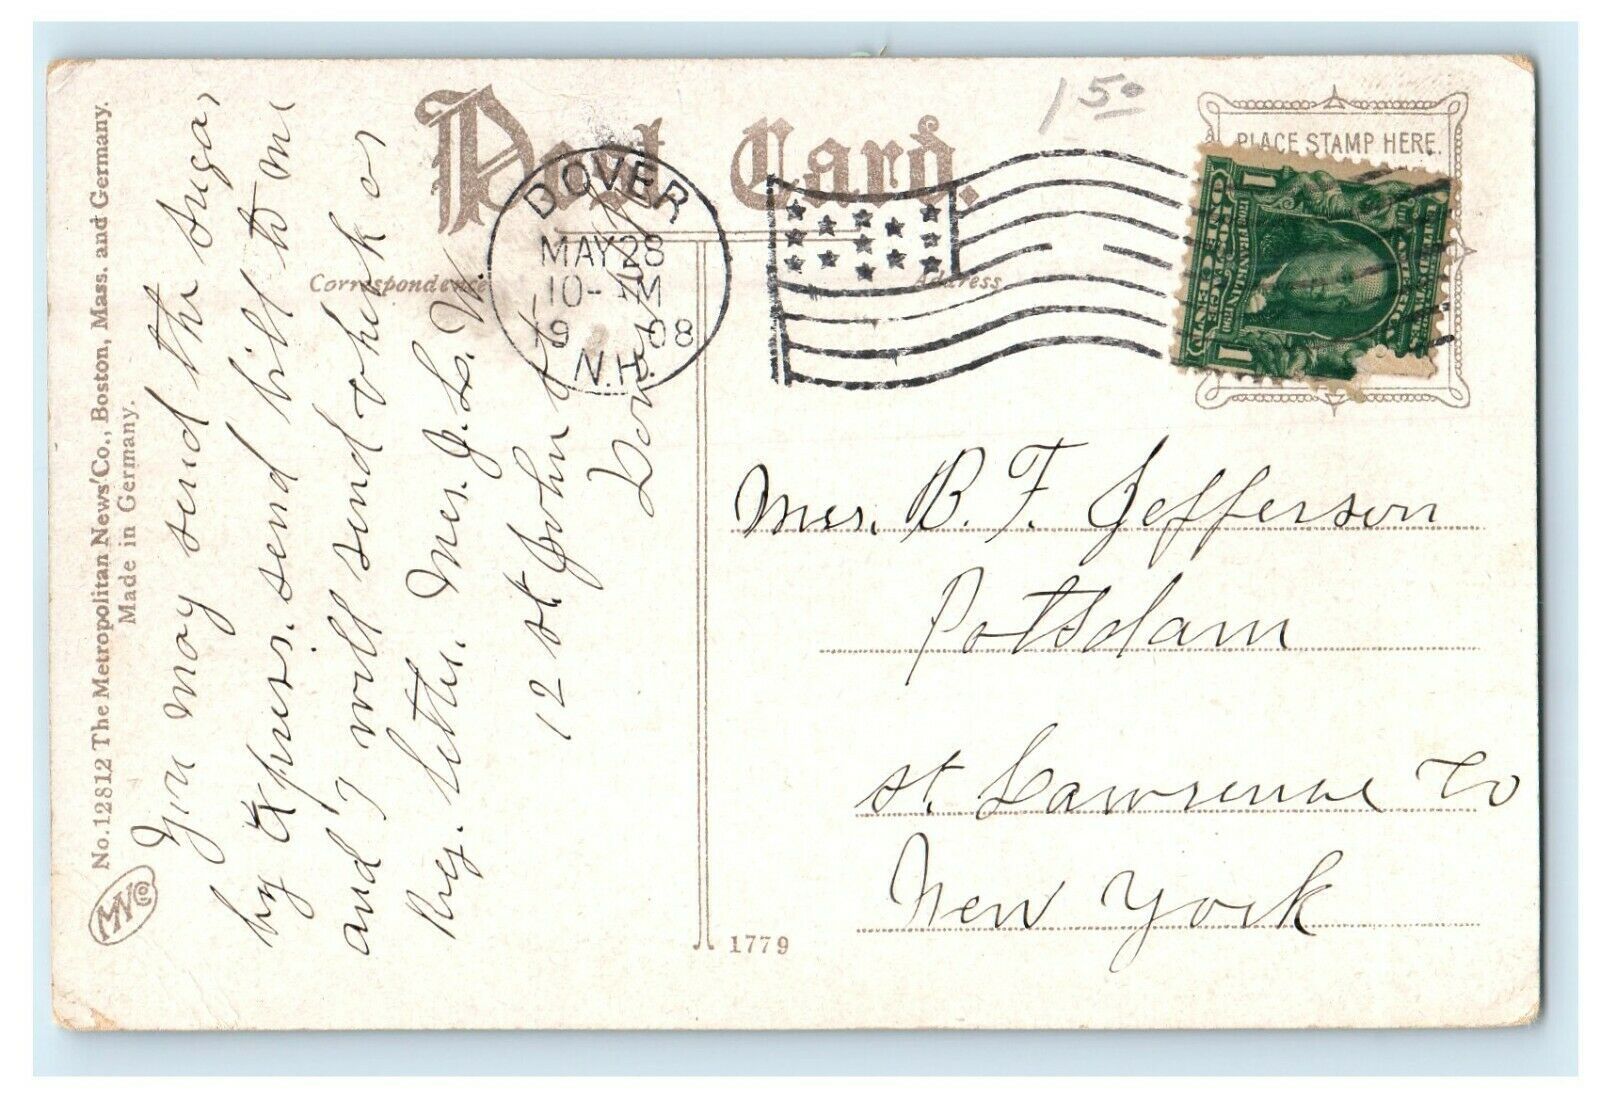 Post Card.
1 50
PLACE STAMP HERE.
DOVER
MAY 28
10- M
19 08
N.H.
Correspondence
Address
1 1
POSTAGE
FRANKLIN
No. 12812 The Metropolitan News Co., Boston, Mass. and Germany.
Made in Germany.
MNCo
You may send the sugar
by Express. send bill to me
and I will send check or
Reg. letter. Mrs. J. L. W.
12 St John St
Mrs. B. F. Jefferson
Potsdam
St. Lawrence Co
New York
1779